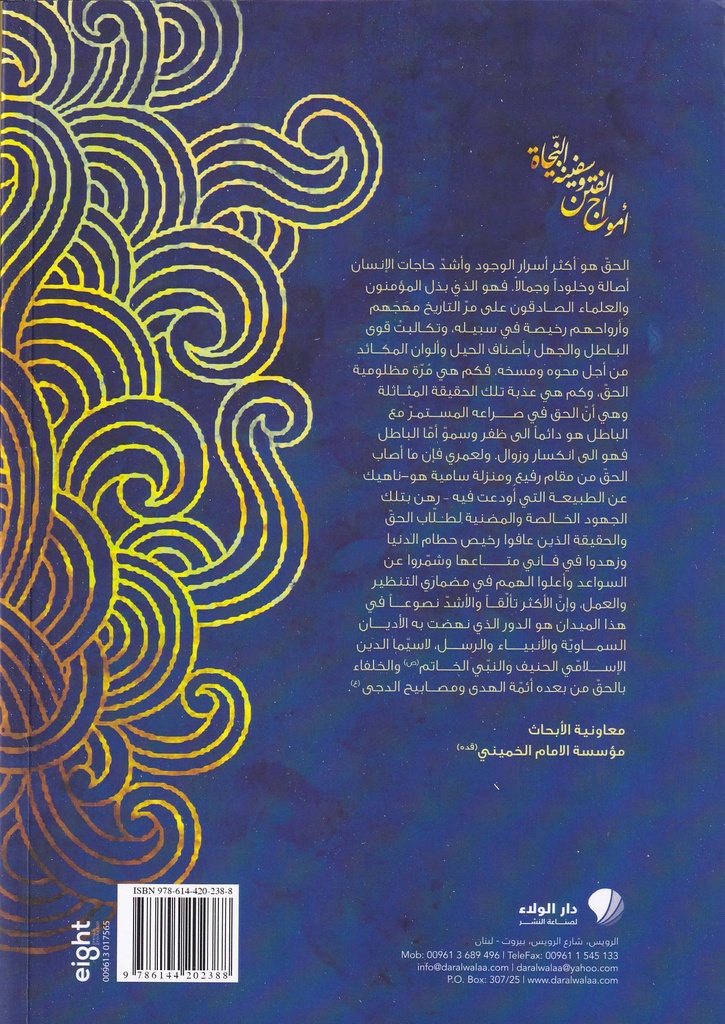 أمواج الفتن وسفينة النّجاة
الحقّ هو أكثر أسرار الوجود وأشدّ حاجات الإنسان
أصالة وخلوداً وجمالاً. فهو الذي بذل المؤمنون
والعلماء الصادقون على مرّ التاريخ مهَجَهم
وأرواحهم رخيصة في سبيله، وتكالبتْ قوى
الباطل والجهل بأصناف الحيل وألوان المكائد
من أجل محوه ومسخه. فكم هي مُرّة مظلومية
الحقّ، وكم هي عذبة تلك الحقيقة المثاثلة
وهي أنّ الحق في صراعه المستمرّ مع
الباطل هو دائماً الى ظفر وسموّ أمّا الباطل
فهو الى انكسار وزوال. ولعمري فإن ما أصاب
الحقّ من مقام رفيع ومنزلة سامية هو-ناهيك
عن الطبيعة التي أودعت فيه - رهن بتلك
الجهود الخالصة والمضنية لطلّاب الحقّ
والحقيقة الذين عافوا رخيص حطام الدنيا
وزهدوا في فاني متاعها وشمّروا عن
السواعد وأعلوا الهمم في مضمازي التنظير
والعمل، وإنَّ الأكثر تألّقاً والأشدّ نصوعاً في
هذا الميدان هو الدور الذي نهضت به الأديان
السماويّة والأنبياء والرسل، لاسيّما الدين
الإسلامي الحنيف والنبّي الخاتم(ص) والخلفاء
بالحقّ من بعده أئمّة الهدى ومصابيح الدجى(ع).
معاونية الأبحاث
مؤسسة الامام الخميني(قده)
دار الولاء
لصناعة النشر
الرويس، شارع الرويس، بيروت - لبنان
Mob: 00961 3 689 496 | TeleFax: 00961 1 545 133
info@daralwalaa.com | daralwalaa@yahoo.com
P.O. Box: 307/25 | www.daralwalaa.com
ISBN 978-614-420-238-8
9 786144 202388
eight
009613 017565